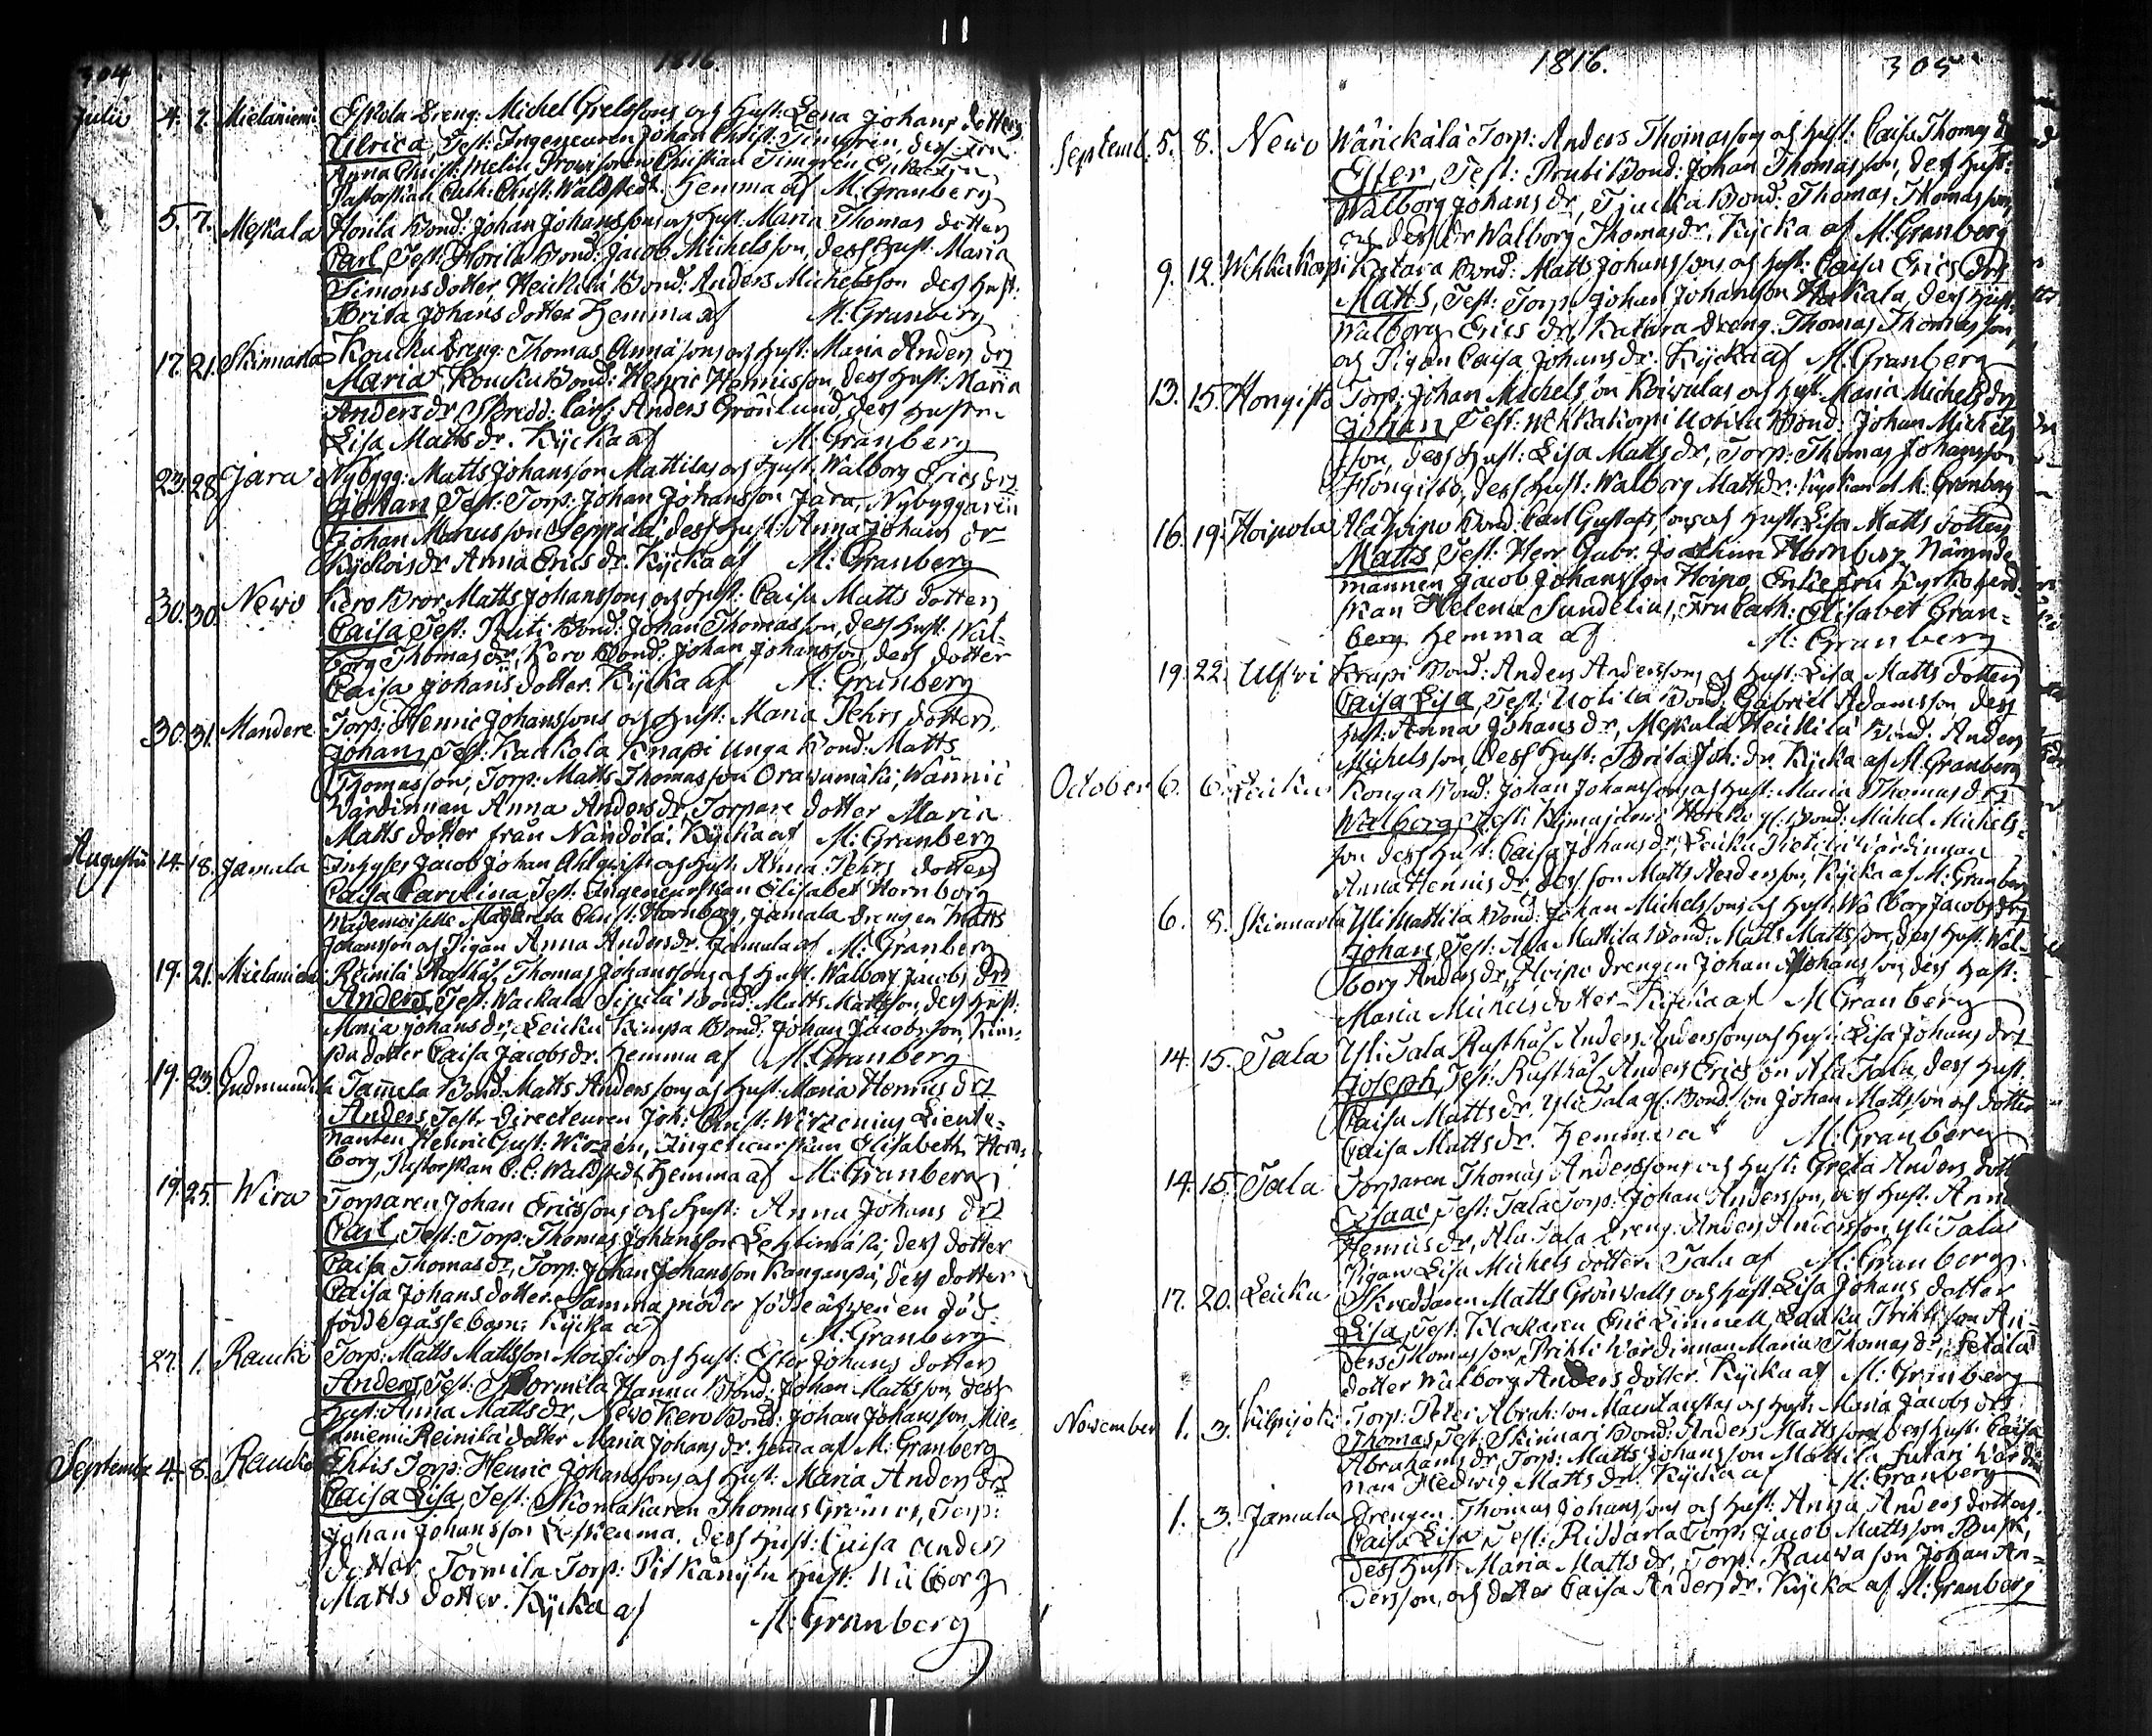 304 1816.
Julii 4. 7. Mielaniemi Eskola Dreng: Michel Grelssons och Hust: Lena Johans dotters
Ulrica, Test: Ingenieuren Johan Christ: Timgren, dess Fru
Anna Christ: Melin Provisoren Christian Timgren Enkefru
Pastorskan Cath: Christ: Waldstedt. Hemma af M: Granberg
5. 7. Meskala Hörila Bond: Johan Johanssons och Hust: Maria Thomas dotters
Carl, Test: Hörila Bond: Jacob Michelsson, dess Hust: Maria
Simons dotter, Heickilä Bond: Anders Michelsson dess Hust:
Brita Johans dotter Hemma af M: Granberg
17. 21. Skinnarla Koucku Dreng: Thomas Annæsons och Hust: Maria Anders drs
Maria, Koucku Bond: Henric Henricsson, dess Hust: Maria
Anders dr, Skredd: Carl: Anders Grönlund, dess Hustru
Lisa Matts dr. Kycka af M: Granberg
23. 28. Jara Nybygg: Matts Johansson Mattilas och Hust: Walborg Erics drs
Johan Test: Torp: Johan Johansson Jara, Nybyggaren
Johan Marcusson Seppälä, dess Hust: Anna Johans dr
Anna Erics dr. Kycka af M: Granberg
30. 30. Newo Kero Bror Matts Johanssons och Hust: Caisa Matts dotters
Caisa, Test: Pruti Bond: Johan Thomasson, dess Hust: Wal-
borg Thomas dr, Kero Bond: Johan Johansson, dess dotter
Caisa Johans dotter. Kycka af M: Granberg
30. 31. Mandere Torp: Henric Johanssons och Hust: Maria Pehrs dotters
Johan, Test: Kaukola Knapi Unga Bond: Matts
Thomasson, Torp: Matts Thomasson Orawamäki, Wännic
Wärdinnan Anna Anders dr, Torpare dotter Maria
Matts dotter från Nändölä. Kycka af M: Granberg
Augusti 14. 18. Jamala Inhyses Jacob Johan Ahlqvists och Hust: Anna Pehrs dotters
Caisa Carolina, Test: Ingenieurskan Elisabet Hornborg
Mademoiselle Margareta Christ: Hornborg, Jamala Drengen Matts
Johansson och Pigan Anna Anders dr. Jamala af M: Granberg
19. 21. Mielaniemi Reinilä Rusthål: Thomas Johanssons och Hust: Walborg Jacobs drs
Anders, Test: Wackala Sipilä Bond: Matts Mattsson, dess Hust:
Maria Johans dr, Leicku Kimpa Bond: Johan Jacobsson, Kim-
pa dotter Caisa Jacobs dr. Hemma af M: Granberg
19. 23. Gudmundila Tamela Bond: Matts Anderssons och Hust: Maria Henrics drs
Anders, Test: Directeuren Joh: Christ: Wirzenius Lieute-
nanten Henric Gust: Wirzén, Ingenieurskan Elisabeth Horn-
borg, Pastorskan C. C. Waldstedt Hemma af M: Granberg
19. 25. Wira Torparen Johan Ericssons och Hust: Anna Johans drs
Carl, Test: Torp: Thomas Johansson Lehtimäki, dess dotter
Caisa Thomas dr, Torp: Johan Johansson Kanganpä, dess dotter
Caisa Johans dotter. Samma moder födde äfwen en död-
född gåssebarn. Kycka af M: Granberg
27. 1. Raucki Torp: Matts Mattsson Moisios och Hust: Ester Johans dotters
Anders, Test: Tormila Hannu Bond: Johan Mattsson, dess
Hust: Anna Matts dr, Newo Kero Bond: Johan Johansson, Mie-
laniemi Reinilä dotter Maria Johans dr. Hema af M: Granberg
Septembr 4. 8. Raucko Ehtis Torp: Henric Johanssons och Hust: Maria Anders drs
Caisa Lisa, Test: Skomakaren Thomas Grönros, Torp:
Johan Johansson dess Hust: Caisa Anders
dotter, Tormila Torp: Pitkänytu Hust: Walborg
Matts dotter. Kycka af M: Granberg
1816. 305
Septemb. 5. 8. Newo Wänickälä Torp: Anders Thomassons och Hust: Caisa Thomas
Ester, Test: Pruti Bond: Johan Thomasson, dess Hust:
Walborg Johans dr, Tjucka Bond: Thomas Thomasson
och dess dr Walborg Thomas dr. Kycka af M: Granberg
9. 12. Wehkakorpi Katara Bond: Matts Johanssons och Hust: Caisa Erics drs
Matts, Test: Torp: Johan Johansson dess Hust:
Walborg Erics dr, Katara Dreng: Thomas Thomasson
och Pigan Caisa Johans dr. Kycka af M: Granberg
13. 15. Hongisto Torp: Johan Michelsson Koiwulas och Hust: Maria Michels drs
Johan, Test: Wehkakorpi Uotila Bond: Johan Michels-
son, dess Hust: Lisa Matts dr, Torp: Thomas Johansson
Hongisto, dess Hust: Walborg Matts dr. Kyckan af M: Granberg
16. 19. Hoipola Ala Hoipo Bond: Carl Gustafssons och Hust: Lisa Matts dotters
Matts, Test: Herr Gabr. Joachim Hornborg Nämnde
mannen Jacob Johansson Hoipo, Enkefru Kyrkoherd-
skan Helena Sundelius, Fru Cath: Elisabet Gran-
berg Hemma af M: Granberg
19. 22. Ulfwi Krapi Bond: Anders Anderssons och Hust: Lisa Matts dotters
Caisa Lisa, Test: Uotila Bond: Gabriel Adamsson, dess
Hust: Anna Johans dr, Meskala Heickilä Bond: Anders
Michelsson, dess Hust: Brita Joh: dr. Kycka af M: Granberg
October 6. 6. Leicku Konga Bond: Johan Johanssons och Hust: Maria Thomas drs
Walborg, Test: Bond: Michel Michels-
son dess Hust: Caisa Johans dr, Leicku Pietilä Wärdinnan
Anna Henrics dr, dess son Matts Andersson, Kycka af M: Granberg
6. 8. Skinnarla Yli Mattila Bond: Johan Michelssons och Hust: Walborg Jacobs drs
Johan, Test: Ala Mattila Bond: Matts Mattsson, dess Hust: Wal-
borg Anders dr, Hoipo Drengen Johan Johansson, dess Hust:
Maria Michels dotter. Kycka af M: Granberg
14. 15. Tala Yli Tala Rusthål: Anders Anderssons och Hust: Lisa Johans drs
Joseph, Test: Rusthål: Anders Ericsson Ala Tala, dess Hust:
Caisa Matts dr, Yli Tala gl: Bond: son Johan Mattsson och dotter
Caisa Matts dr. Hemma af M: Granberg
14. 15. Tala Torparen Thomas Anderssons och Hust: Greta Anders dott
Isaac, Test: Tala Torp: Johan Andersson, dess Hust: Anna
Henrics dr, Ala Tala Dreng: Anders Andersson, Yli Tala
Pigan Lisa Michels dotter. Tala af M: Granberg
17. 20. Leicku Skreddaren Matts Grönwalls och Hust: Lisa Johans dotter
Lisa, Test: Klockaren Eric Limnell, Leicku Prihti son An-
ders Thomasson, Prihti Wärdinnan Maria Thomas dr,
dotter Walborg Anders dotter. Kycka af M: Granberg
November 1. 3. Kilpijoki Torp: Peter Abrahamsson och Hust: Maria Jacobs drs
Thomas, Test: Skinnari Bond: Anders Mattsson dess Hust: Caisa
Abrahams dr, Torp: Matts Johansson Mattila, Wärdin-
nan Hedwig Matts dr. Kycka af M: Granberg
1. 3. Jamala Drengen Thomas Johanssons och Hust: Anna Anders dotters
Caisa Lisa, Test: Riddarla Torp: Jacob Mattsson Busk,
dess Hust: Maria Matts dr, Torp: Rauwa son Johan An-
dersson, och dotter Caisa Anders dr. Kycka af M: Granberg